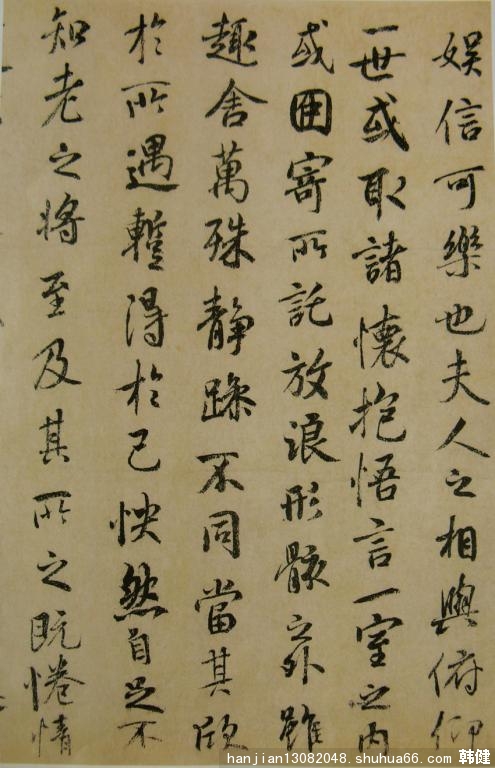 娱信可樂也夫人之相與俯仰
一世或取諸懷抱悟言一室之内
或因寄所託放浪形骸之外雖
趣舍萬殊静躁不同當其欣
於所遇暫得於己怏然自足不
知老之将至及其所之既惓情
hanjian13082048.shuhua66.com 韩健